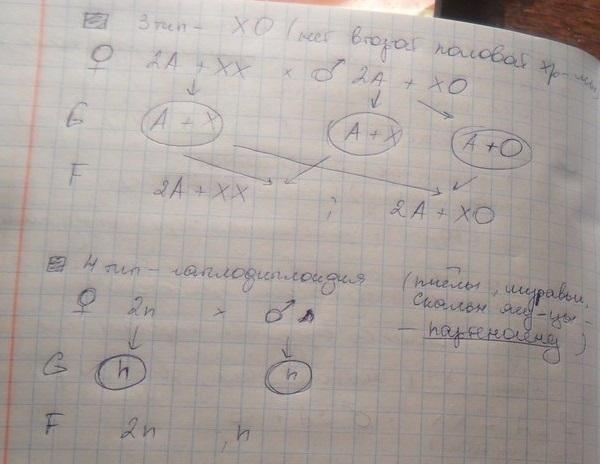 3 тип - ХО (нет второй половой хр-мы)
♀ 2А + ХХ × ♂ 2А + ХО
G А + Х А + Х А + О
F 2А + ХХ ; 2А + ХО
4 тип - гаплодиплоидия (пчёлы, муравьи,
скальн ящ-цы -
- партеногенез)
♀ 2n × ♂ n
G n n
F 2n , n